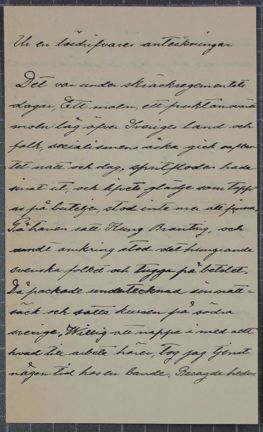 Ur en lösdrifvares anteckningar
Det var under skräckregementets
dagar. Ett moln, ett fruktansvärdt
moln låg öfver Sveriges land och
folk, socialismens åska gick
natt och dag, spritfloden hade
sinat ut, och hvete glödje som
se på buteljer, stod inte mer att finna.
På haren satt Kung Branting, och
rundt omkring stod det hungrande
svenska folket och tugga på betslet.
Då packade undertecknad sin mat-
säck och satte kursen på södra
sverige. Willig att nappa i med allt
hvad till arbete hörer. Tog jag tjenst
någon tid hos en bonde. Besagde bonde